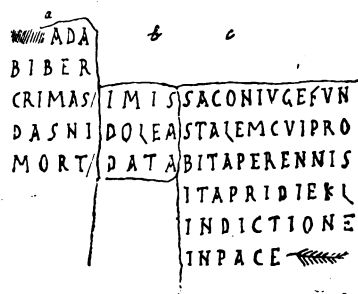 a b c
ADA
BIBER
CRIMAS IMIS SACONIVGEFVN
DASNI DOLEA STALEMCVIPRO
MORT DATA BITAPERENNIS
ITAPRIDIEKL
INDICTIONE
INPACE